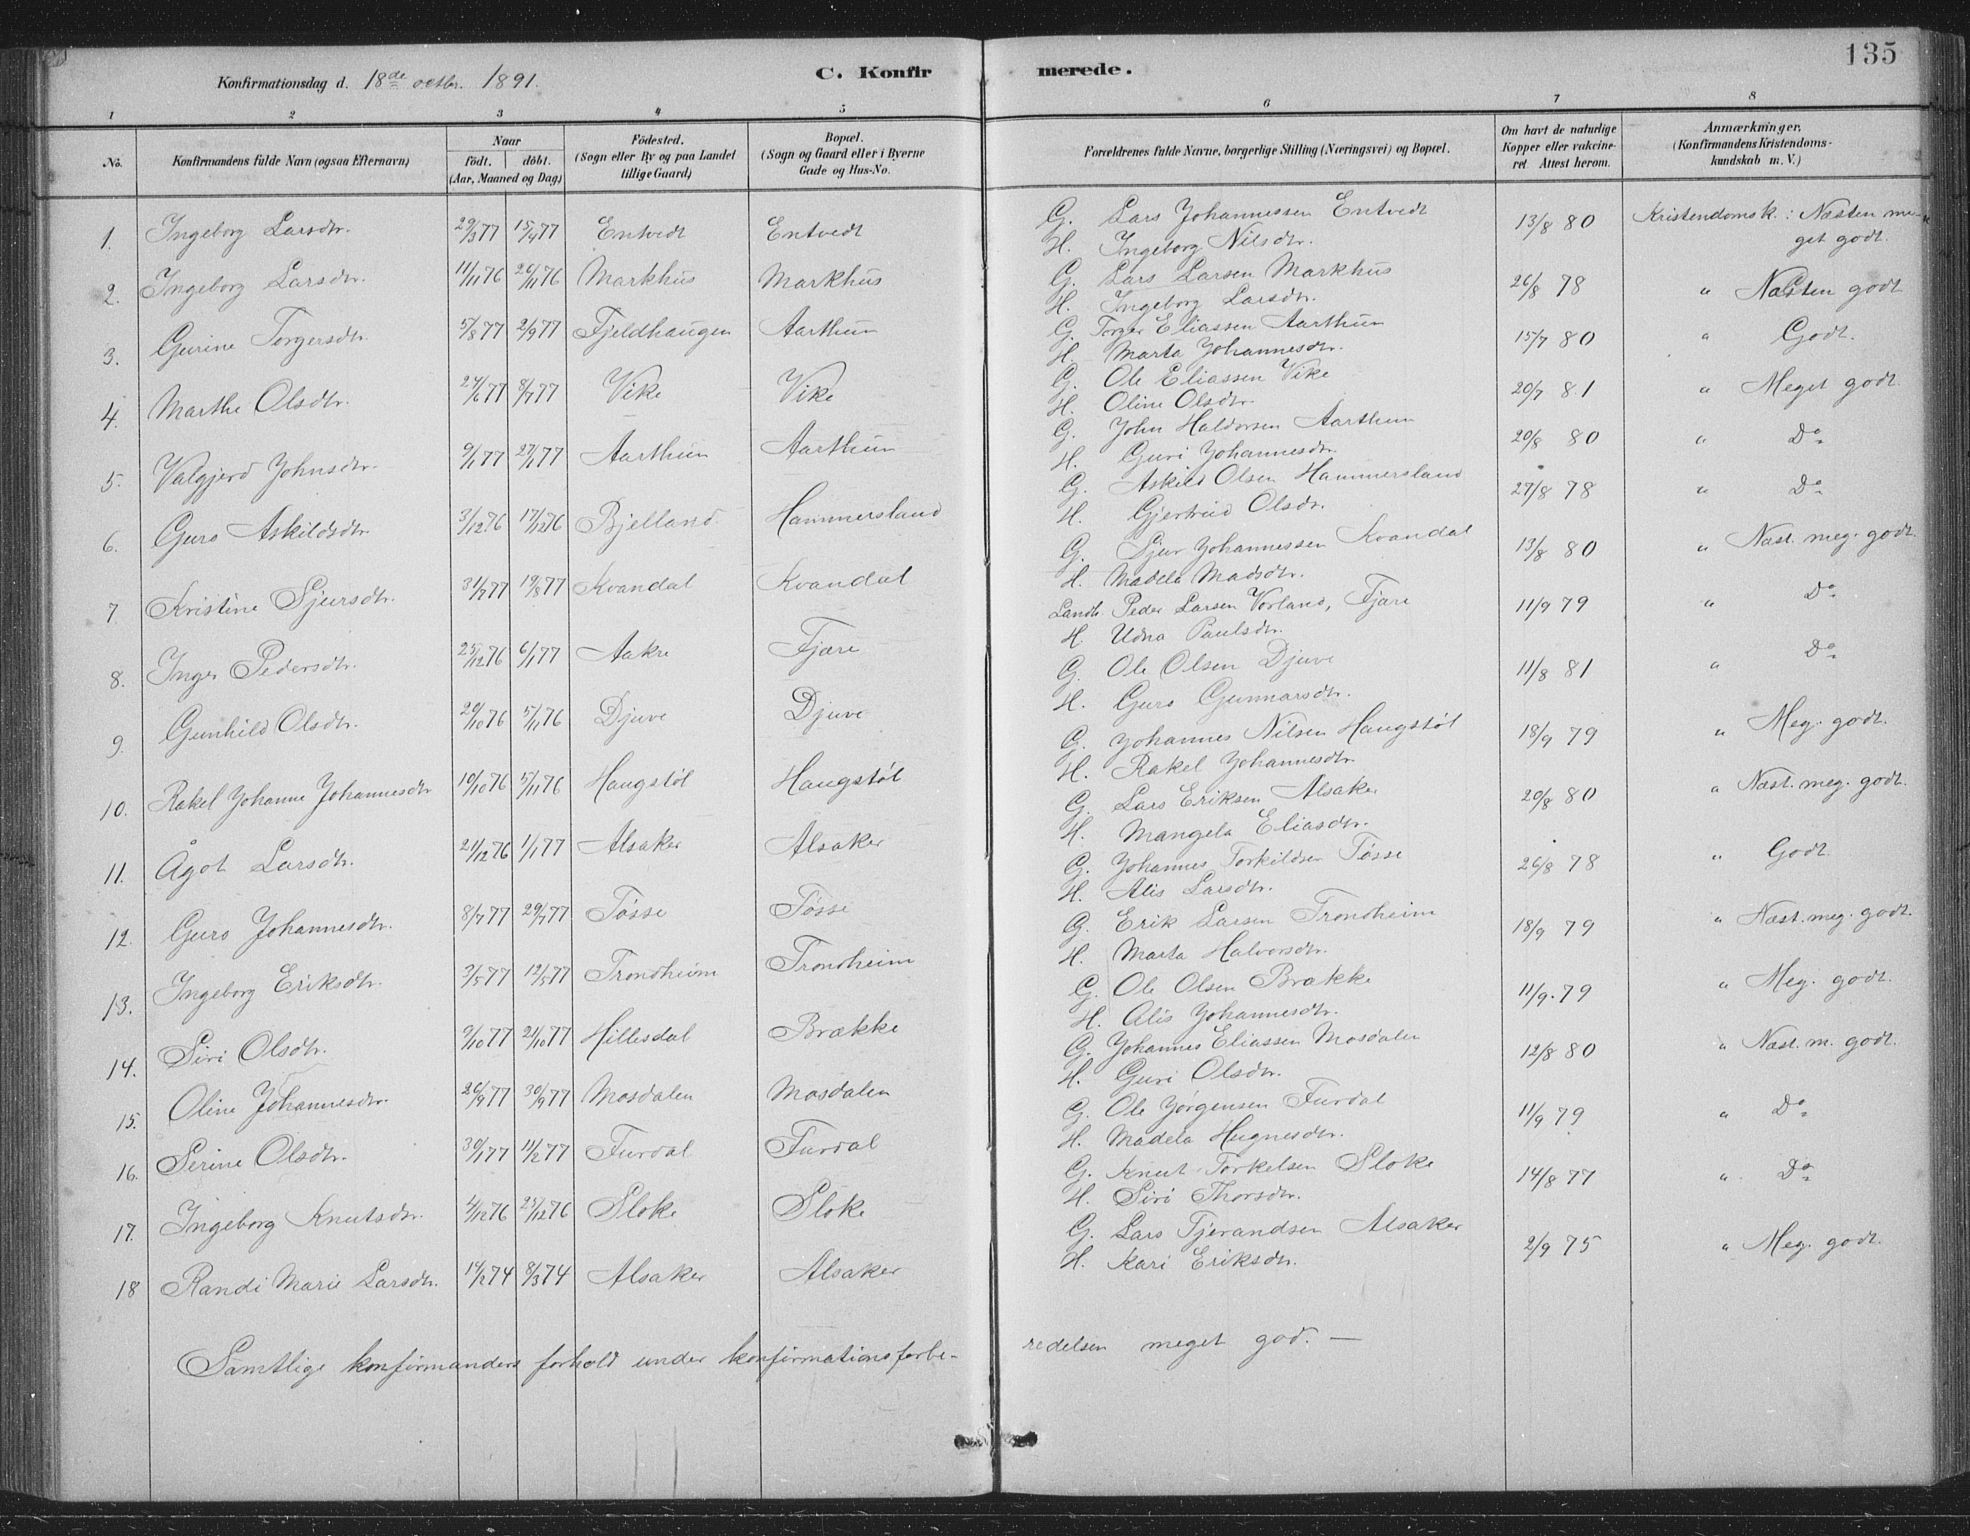 135
Konfirmationsdag d. 18de octbr. 1891.
C. Konfirmerede.
1 2 3 4 5 6 7 8
No.
Konfirmandens fulde Navn (ogsaa Efternavn)
Naar
födt. döbt.
(Aar, Maaned og Dag)
Födested.
(Sogn eller By og paa Landet
tillige Gaard)
Bopæl.
(Sogn og Gaard eller i Byerne
Gade og Hus-No.
Forældrenes fulde Navne, borgerlige Stilling (Næringsvei) og Bopæl.
Om havt de naturlige
Kopper eller vakcineret
Attest herom.
Anmærkninger.
(Konfirmandens Kristendomskundskab
m. V.)
1. Ingeborg Larsdtr. 29/3 77 15/4 77 Entvedt Entvedt G. Lars Johannessen Entvedt 13/8 80 Kristendomsk.: Næsten me-
H. Ingeborg Nilsdtr. get godt.
2. Ingeborg Larsdtr. 11/11 76 26/11 76 Markhus Markhus G. Lars Larsen Markhus 26/8 78 " Næsten godt
H. Ingeborg Larsdtr.
3. Gurine Torgersdtr. 5/8 77 2/9 77 Fjeldhaugen Aarthun G. Torger Eliassen Aarthun 15/7 80 " Godt.
H. Marta Johannesdtr.
4. Marthe Olsdtr. 24/6 77 8/7 77 Vike Vike G. Ole Eliassen Vike 20/7 81 " Meget godt.
H. Oline Olsdtr.
5. Valgjerd Johnsdtr. 9/1 77 27/1 77 Aarthun Aarthun G. John Haldorsen Aarthun 20/8 80 " Do
H. Guri Johannesdtr.
6. Guro Askildsdtr. 3/12 76 17/12 76 Bjelland Hammersland G. Askild Olsen Hammersland 27/8 78 " Do
H. Gjertrud Olsdr.
7. Kristine Sjursdtr. 31/7 77 19/8 77 Kvandal Kvandal G. Sjur Johannessen Kvandal 13/8 80 " Næst. meg. godt.
H. Madela Madsdtr.
8. Inger Pedersdtr. 25/12 76 6/1 77 Aakre Fjære Landh. Peder Larsen Vorland, Fjære 11/9 79 " Do
H. Udna Paulsdtr.
9. Gunhild Olsdtr. 29/10 76 5/11 76 Djuve Djuve G. Ole Olsen Djuve 11/8 81 " Do
H. Guro Gunnarsdtr.
10. Rakel Johanne Johannesdtr 10/10 76 5/11 76 Haugstøl Haugstøl G. Johannes Nilsen Haugstøl 18/9 79 " Meg. godt.
H. Rakel Johannesdtr.
11. Ågot Larsdtr. 21/12 76 1/1 77 Alsaker Alsaker G. Lars Eriksen Alsaker 20/8 80 " Næst. meg. godt.
H. Mangela Eliasdtr.
12. Guro Johannesdtr. 8/7 77 29/7 77 Tøsse Tøsse G. Johannes Torkildsen Tøsse 26/8 78 " Godt.
H. Alis Larsdtr.
13. Ingeborg Eriksdtr. 3/5 77 12/5 77 Trondheim Trondheim G. Erik Larsen Trondheim 18/9 79 " Næst. meg. godt.
H. Marta Halvorsdtr.
14. Siri Olsdtr. 9/10 77 21/10 77 Hillesdal Brække G. Ole Olsen Brække 11/9 79 " Meg. godt.
H. Alis Johannesdtr.
15. Oline Johannesdtr. 26/9 77 30/9 77 Mosdalen Mosdalen G. Johannes Eliassen Mosdalen 12/8 80 " Næst. m. godt.
H. Guri Olsdtr.
16. Serine Olsdtr. 30/1 77 11/2 77 Furdal Furdal G. Ole Jørgensen Furdal 11/9 79 " Do
H. Madela Hugnesdtr.
17. Ingeborg Knutsdtr. 4/12 76 25/12 76 Sloke Sloke G. Knut Torkelsen Sloke 14/8 77 " Do
H. Siri Thorsdtr.
18 Randi Marie Larsdtr. 14/2 74 8/3 74 Alsaker Alsaker G. Lars Tjerandsen Alsaker 2/9 75 " Meg. godt.
H. Kari Eriksdtr.
Samtlige konfirmanders forhold under konfirmationsforbe- redelsen meget god. —